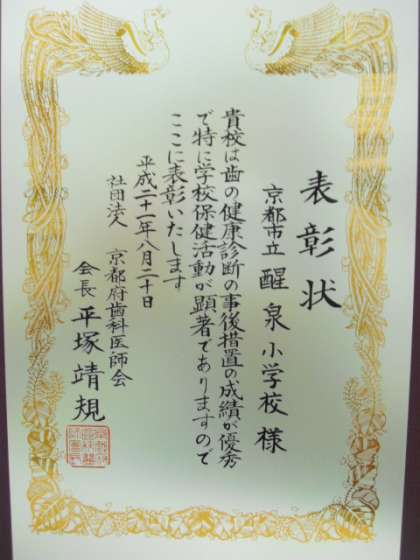 表彰状
京都市立 醒泉小学校様
貴校は歯の健康診断の事後措置の成績が優秀
で特に学校保健活動が顕著でありますので
ここに表彰いたします
平成二十一年八月二十日
社団法人 京都府歯科医師会
会長 平塚靖規